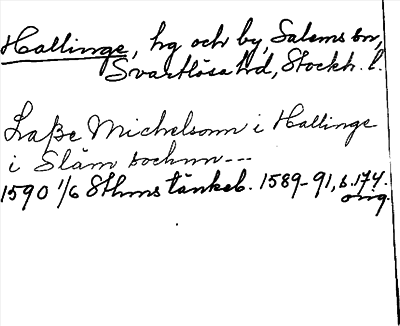 Hallinge, hg och by, Salems sn,
Svartlösa hd, Stockh. l.
Laße Michelsonn i Hallinge
i Släm sochnn---
1590 1/6 Sthms tänkeb. 1589-91, s. 174.
orig.